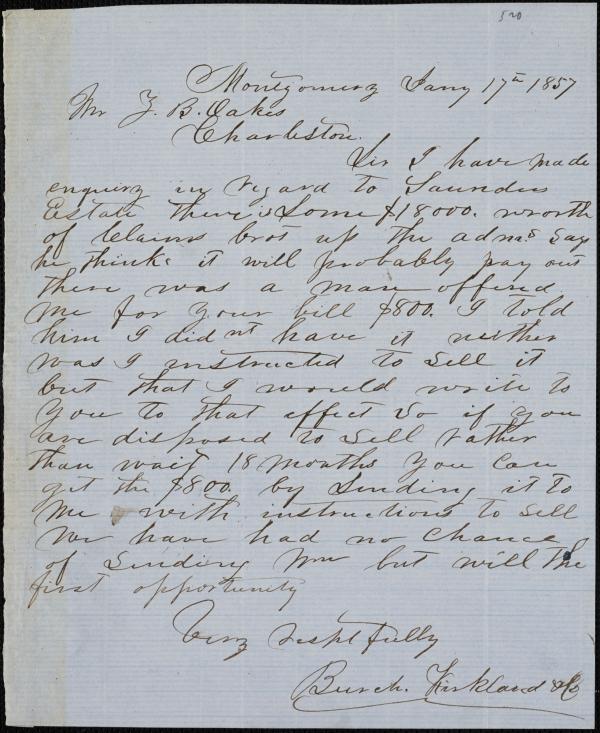 520
Montgomery Jany 17th 1857
Mr Z. B. Oakes
Charleston.
Sir I have made
enquiry in regard to Saunders
Estate there is some $18000. worth
of Claims brot up the admr says
he thinks it will probably pay out
there was a man offered
me for your bill $800. I told
him I didnt have it neither
was I instructed to sell it
but that I would write to
you to that effect so if you
are disposed to sell rather
than wait 18 months you can
get the $800. by sending it to
me with instructions to sell
We have had no chance
of sending Wm but will the
first opportunity
Very respectfully
Burch. Kirkland & Co